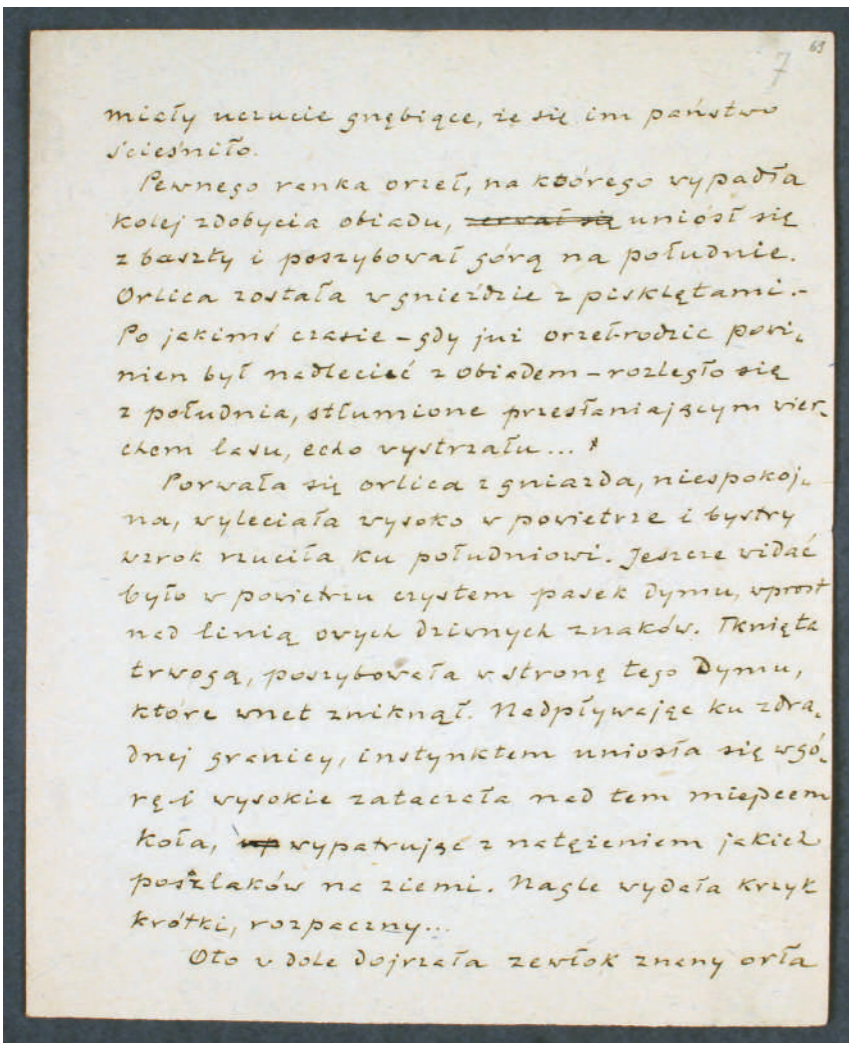 69
7
miały uczucie gnębiące, że się im państwo
ścieśniło.
Pewnego ranka orzeł, na którego wypadła
kolej zdobycia obiadu, zerwał się uniósł się
z baszty i poszybował górą na południe.
Orlica została w gnieździe z pisklętami.-
Po jakimś czasie – gdy już orzeł-rodzic powi-
nien był nadlecieć z obiadem – rozległo się
z południa, stłumione przesłaniającym wierz-
chem lasu, echo wystrzału...
Porwała się orlica z gniazda, niespokoj-
na, wyleciała wysoko w powietrze i bystry
wzrok rzuciła ku południowi. Jeszcze widać
było w powietrzu czystem pasek dymu, wprost
nad linią owych dziwnych znaków. Tknięta
trwogą, poszybowała w stronę tego dymu,
które wnet zniknął. Nadpływając ku zdra-
dnej granicy, instynktem uniosła się wgó-
rę i wysokie zataczała nad tem miejscem
koła, wp wypatrując z natężeniem jakich
poszlaków na ziemi. Nagle wydała krzyk
krótki, rozpaczny...
Oto w dole dojrzała zewłok znany orła